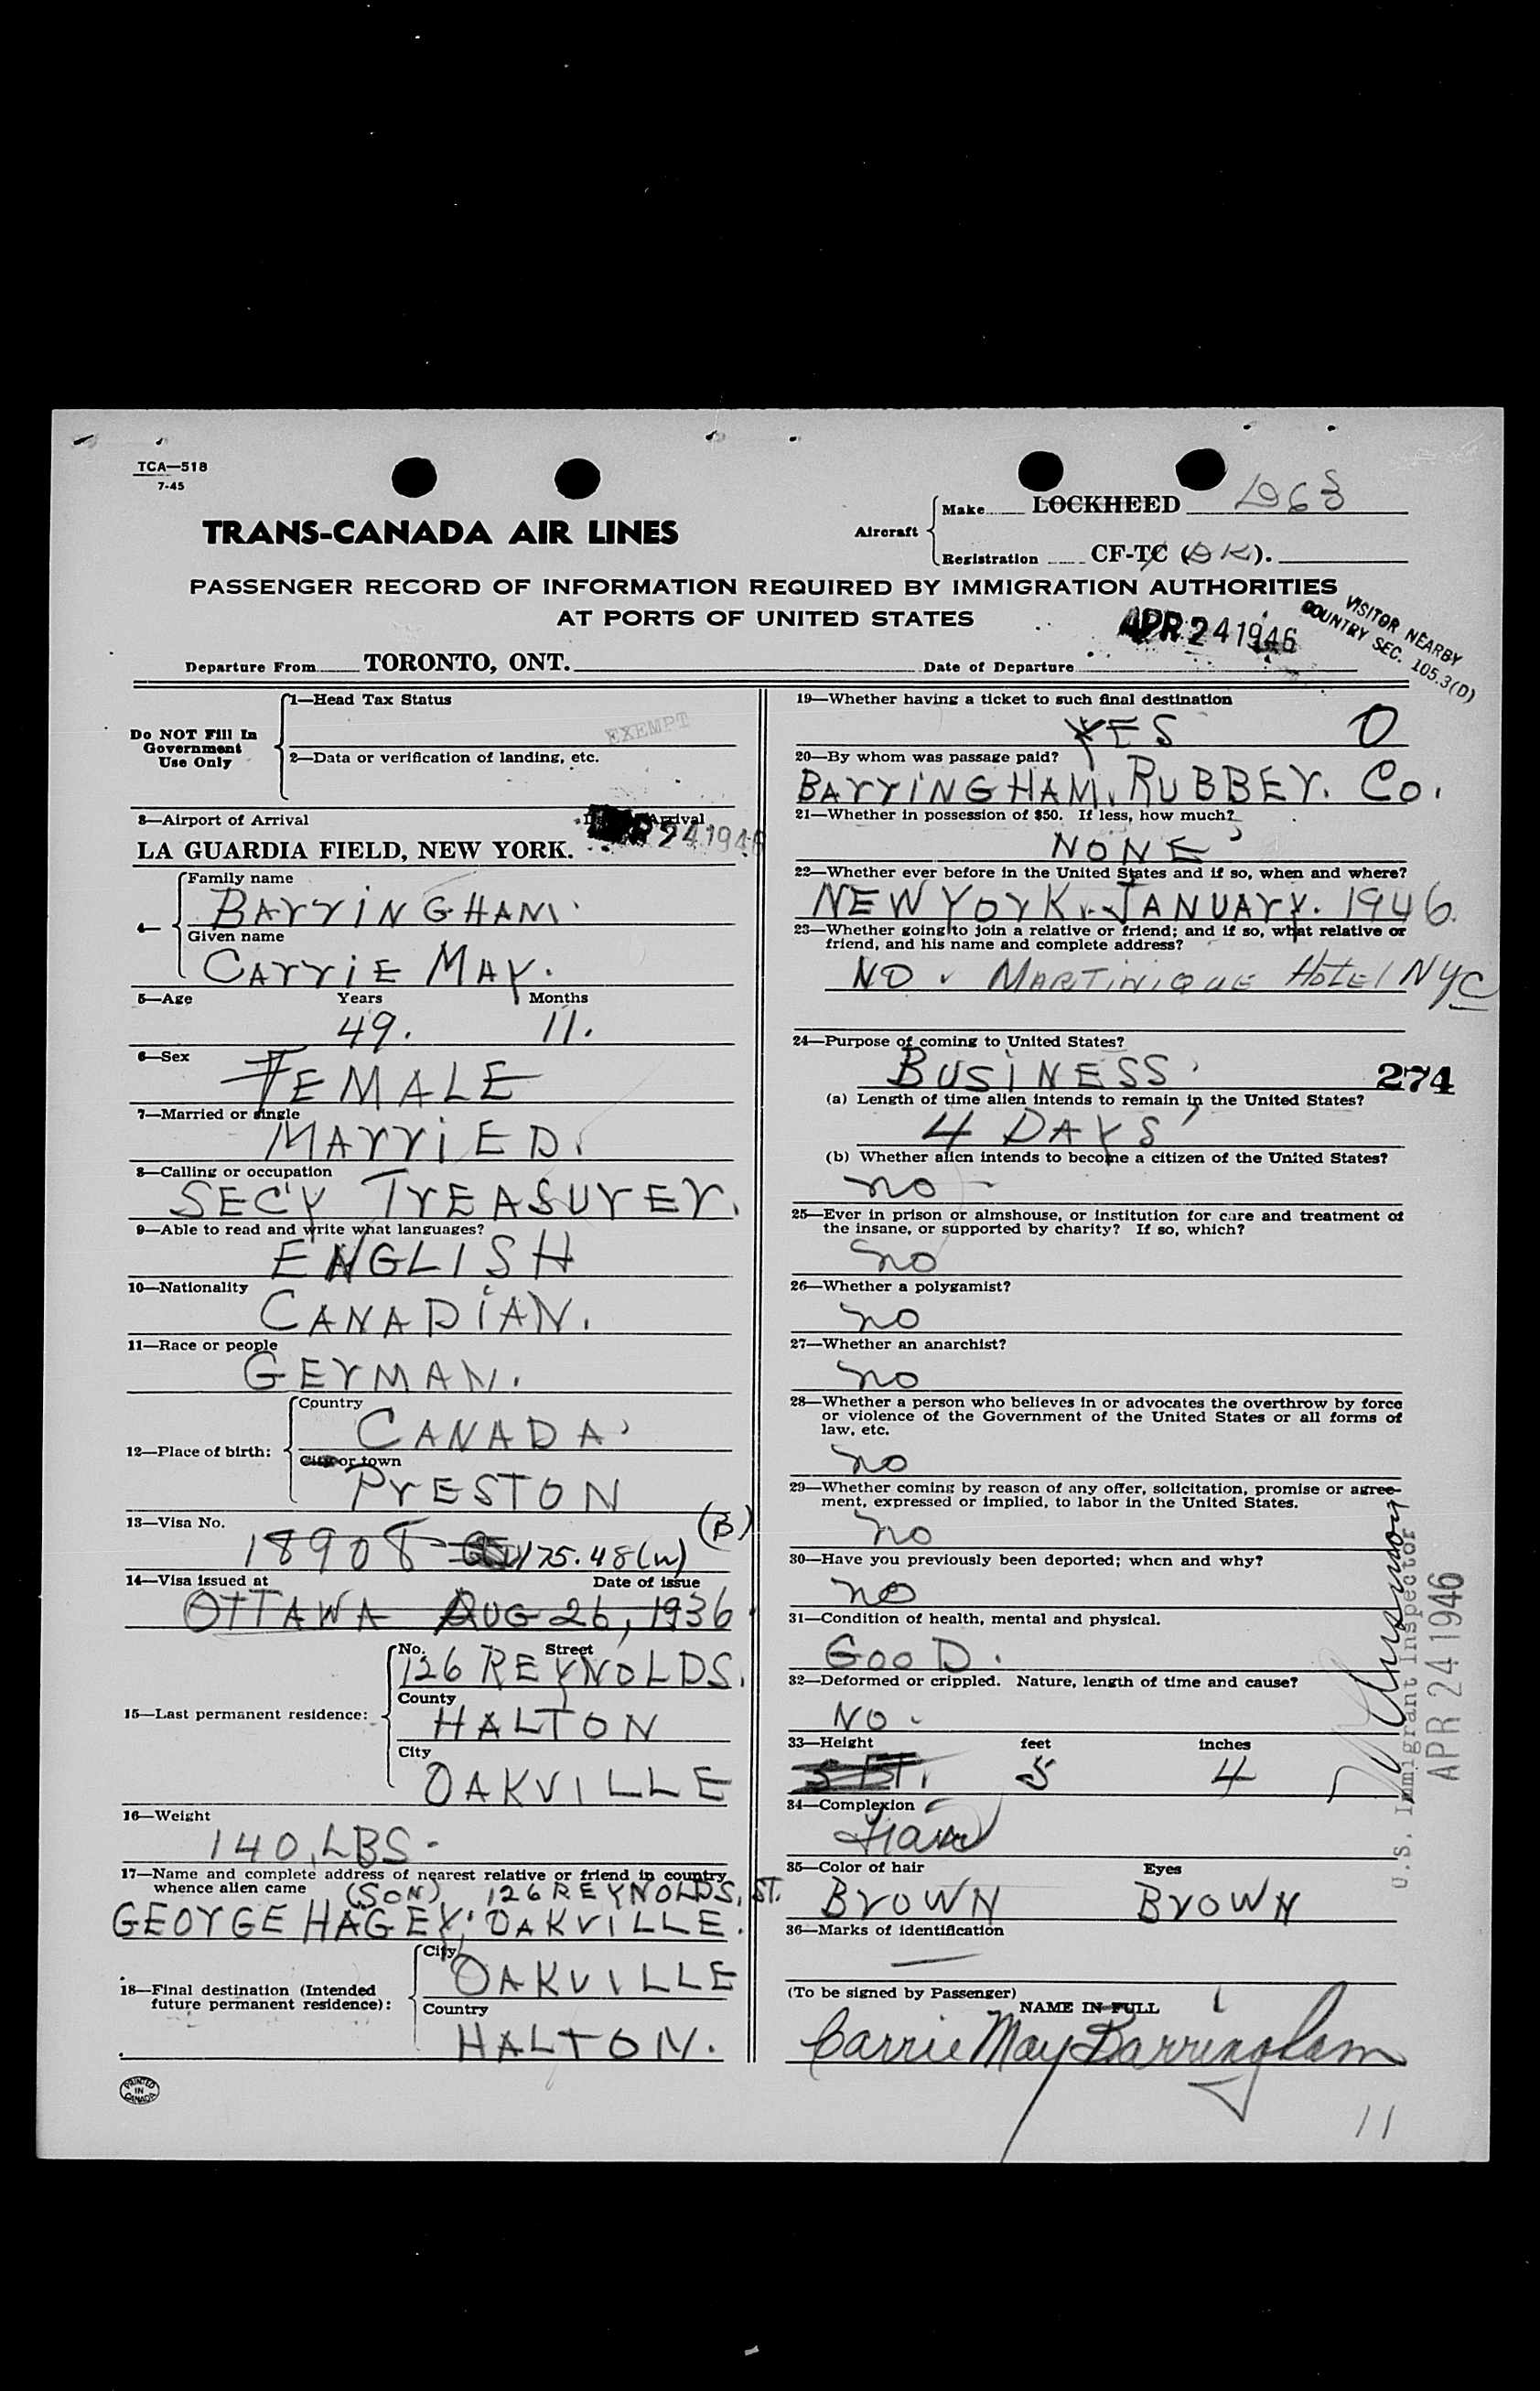 TCA—518
7-45
TRANS-CANADA AIR LINES
Aircraft
Make LOCKHEED
Registration CF-TC ( ).
PASSENGER RECORD OF INFORMATION REQUIRED BY IMMIGRATION AUTHORITIES
AT PORTS OF UNITED STATES
APR 24 1946
VISITOR NEARBY
COUNTRY SEC. 105.3(D)
Departure From TORONTO, ONT. Date of Departure
Do NOT Fill In
Government
Use Only
1—Head Tax Status
EXEMPT
2—Data or verification of landing, etc.
3—Airport of Arrival
LA GUARDIA FIELD, NEW YORK.
Arrival
24 1946
4—
Family name
BARRINGHAM.
Given name
CARRIE MAY.
5—Age Years Months
49. 11.
6—Sex
FEMALE
7—Married or single
MARRIED.
8—Calling or occupation
SEC'Y TREASURER.
9—Able to read and write what languages?
ENGLISH
10—Nationality
CANADIAN.
11—Race or people
GERMAN.
12—Place of birth:
Country
CANADA
City or town
PRESTON
13—Visa No.
18908 175.48(W) (B)
14—Visa issued at Date of issue
OTTAWA AUG 26, 1936
15—Last permanent residence:
No. Street
126 REYNOLDS.
County
HALTON
City
OAKVILLE
16—Weight
140 LBS.
17—Name and complete address of nearest relative or friend in country
whence alien came
(SON) 126 REYNOLDS, ST.
GEORGE HAGEY. OAKVILLE.
18—Final destination (Intended
future permanent residence):
City
OAKVILLE
Country
HALTON.
PRINTED
IN
CANADA
19—Whether having a ticket to such final destination
YES 0
20—By whom was passage paid?
BARRINGHAM. RUBBER. CO.
21—Whether in possession of $50. If less, how much?
NONE
22—Whether ever before in the United States and if so, when and where?
NEW YORK. JANUARY. 1946.
23—Whether going to join a relative or friend; and if so, what relative or
friend, and his name and complete address?
NO. MARTINIQUE HOTEL NYC
24—Purpose of coming to United States?
BUSINESS 274
(a) Length of time alien intends to remain in the United States?
4 DAYS
(b) Whether alien intends to become a citizen of the United States?
no
25—Ever in prison or almshouse, or institution for care and treatment of
the insane, or supported by charity? If so, which?
no
26—Whether a polygamist?
no
27—Whether an anarchist?
no
28—Whether a person who believes in or advocates the overthrow by force
or violence of the Government of the United States or all forms of
law, etc.
no
29—Whether coming by reason of any offer, solicitation, promise or agree-
ment, expressed or implied, to labor in the United States.
no
30—Have you previously been deported; when and why?
no
31—Condition of health, mental and physical.
GOOD.
32—Deformed or crippled. Nature, length of time and cause?
NO.
33—Height feet inches
5 FT. 5 4
34—Complexion
35—Color of hair Eyes
BROWN BROWN
36—Marks of identification
—
(To be signed by Passenger)
NAME IN FULL
Carrie May Barringham
11
U.S. Immigrant Inspector
APR 24 1946